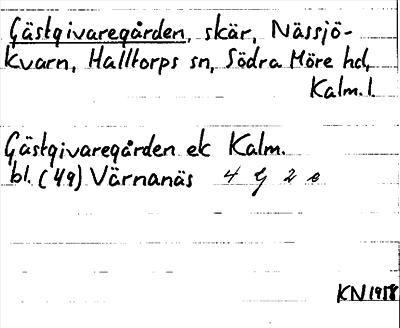 Gästgivaregården, skär, Nässjö-
kvarn, Halltorps sn, Södra Möre hd,
Kalm. l.
Gästgivaregården ek Kalm.
bl. (49) Värnanäs 4 G 2 e
KN 1958